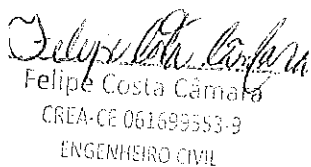 Felipe Costa Câmara
Felipe Costa Câmara
CREA-CE 061699553-9
ENGENHEIRO CIVIL